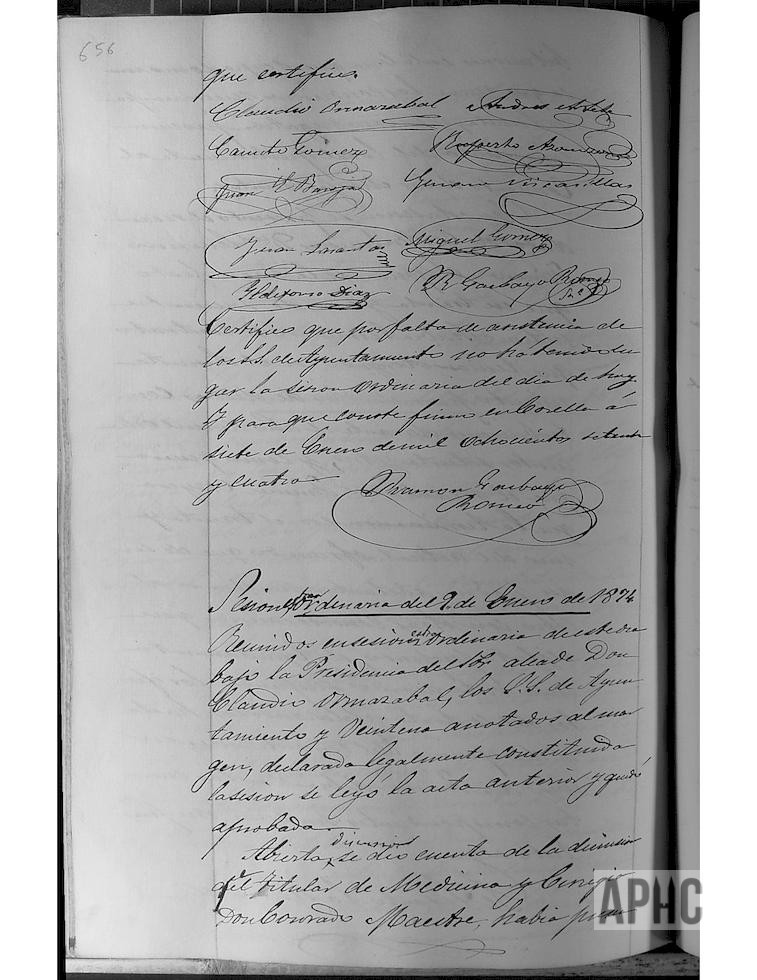 656
que certifico.
Claudio Ormazabal Andres
Camilo Gomez Ruperto
Juan Genaro
Juan Lasantas Miguel Gomez
Yldefonso Diaz R Garbayo Romeo
Srio
Certifico que por falta de asistencia de
los S.S. de Ayuntamiento no há tenido lu
gar la sesion ordinaria del dia de hoy
Y para que conste firmo en Corella á
siete de Enero de mil ochocientos setenta
y cuatro
Ramon Garbayo
Romeo
Sesion extraordinaria del 9 de Enero de 1874
Reunidos en sesion extraordinaria de este dia
bajo la Presidencia del Sor. alcalde Don
Claudio Ormazabal, los S.S. de Ayun
tamiento y Veintena anotados al mar
gen, declarada legalmente constituida
la sesion se leyó la acta anterior y quedó
aprobada.
Abierta discusion se dio cuenta de la dimision
qe. el titular de Medicina y Cirugia
Don Conrado Maestre, habia presen
APHC